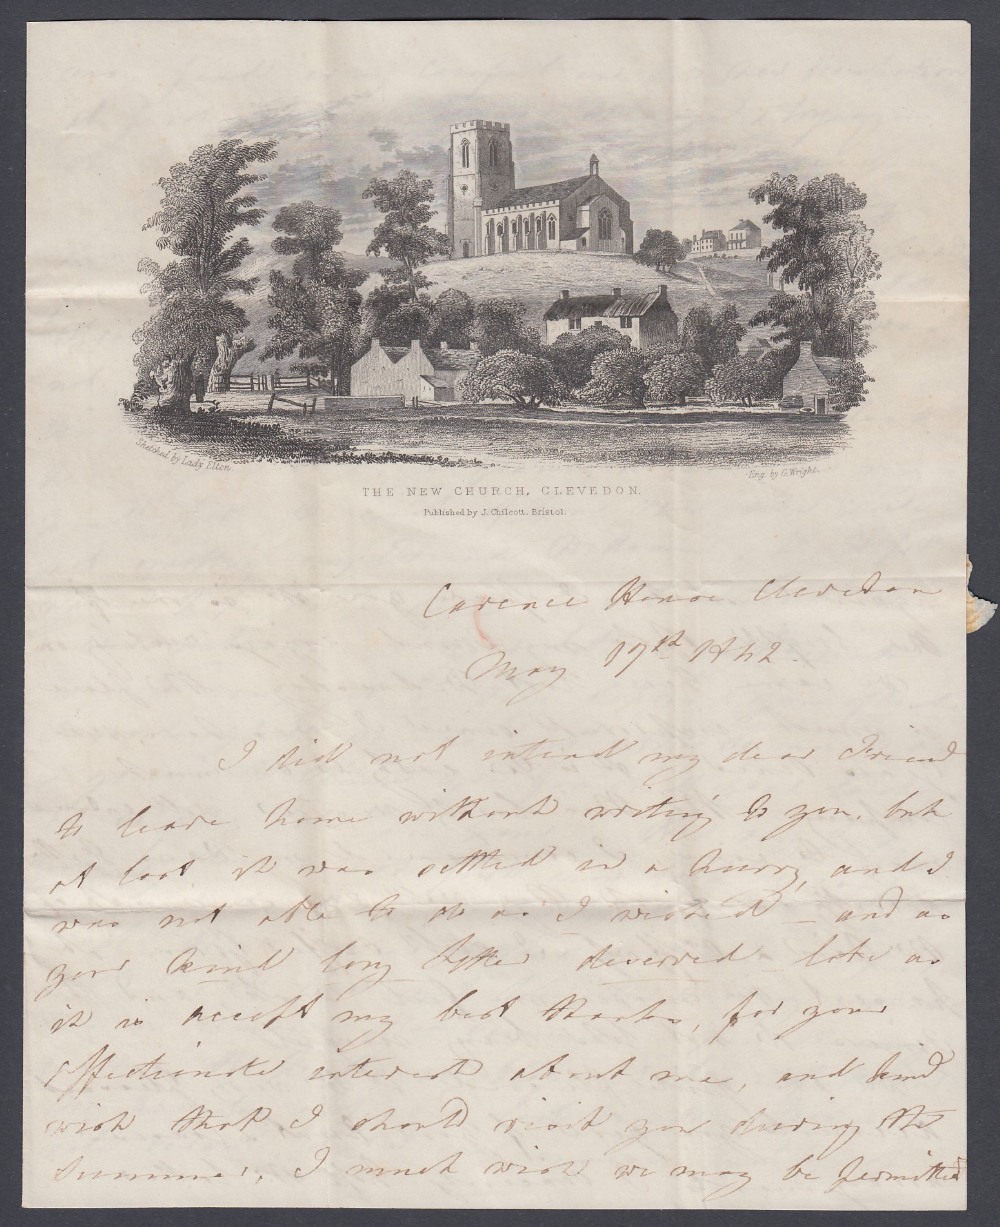 Sketched by Lady Elton
Eng. by G. Wright.
THE NEW CHURCH, CLEVEDON.
Published by J. Chilcott. Bristol.
Clevedon
May 17th 1842.
I did not intend my dear Friend
to leave home without writing to you, but
at last it was settled in a hurry, and I
was not able to do as I wished – and as
your kind long letter deserved late as
it is accept my best thanks, for your
affectionate interest about me, and kind
wish that I should visit you during the
summer, I much wish we may be permitted